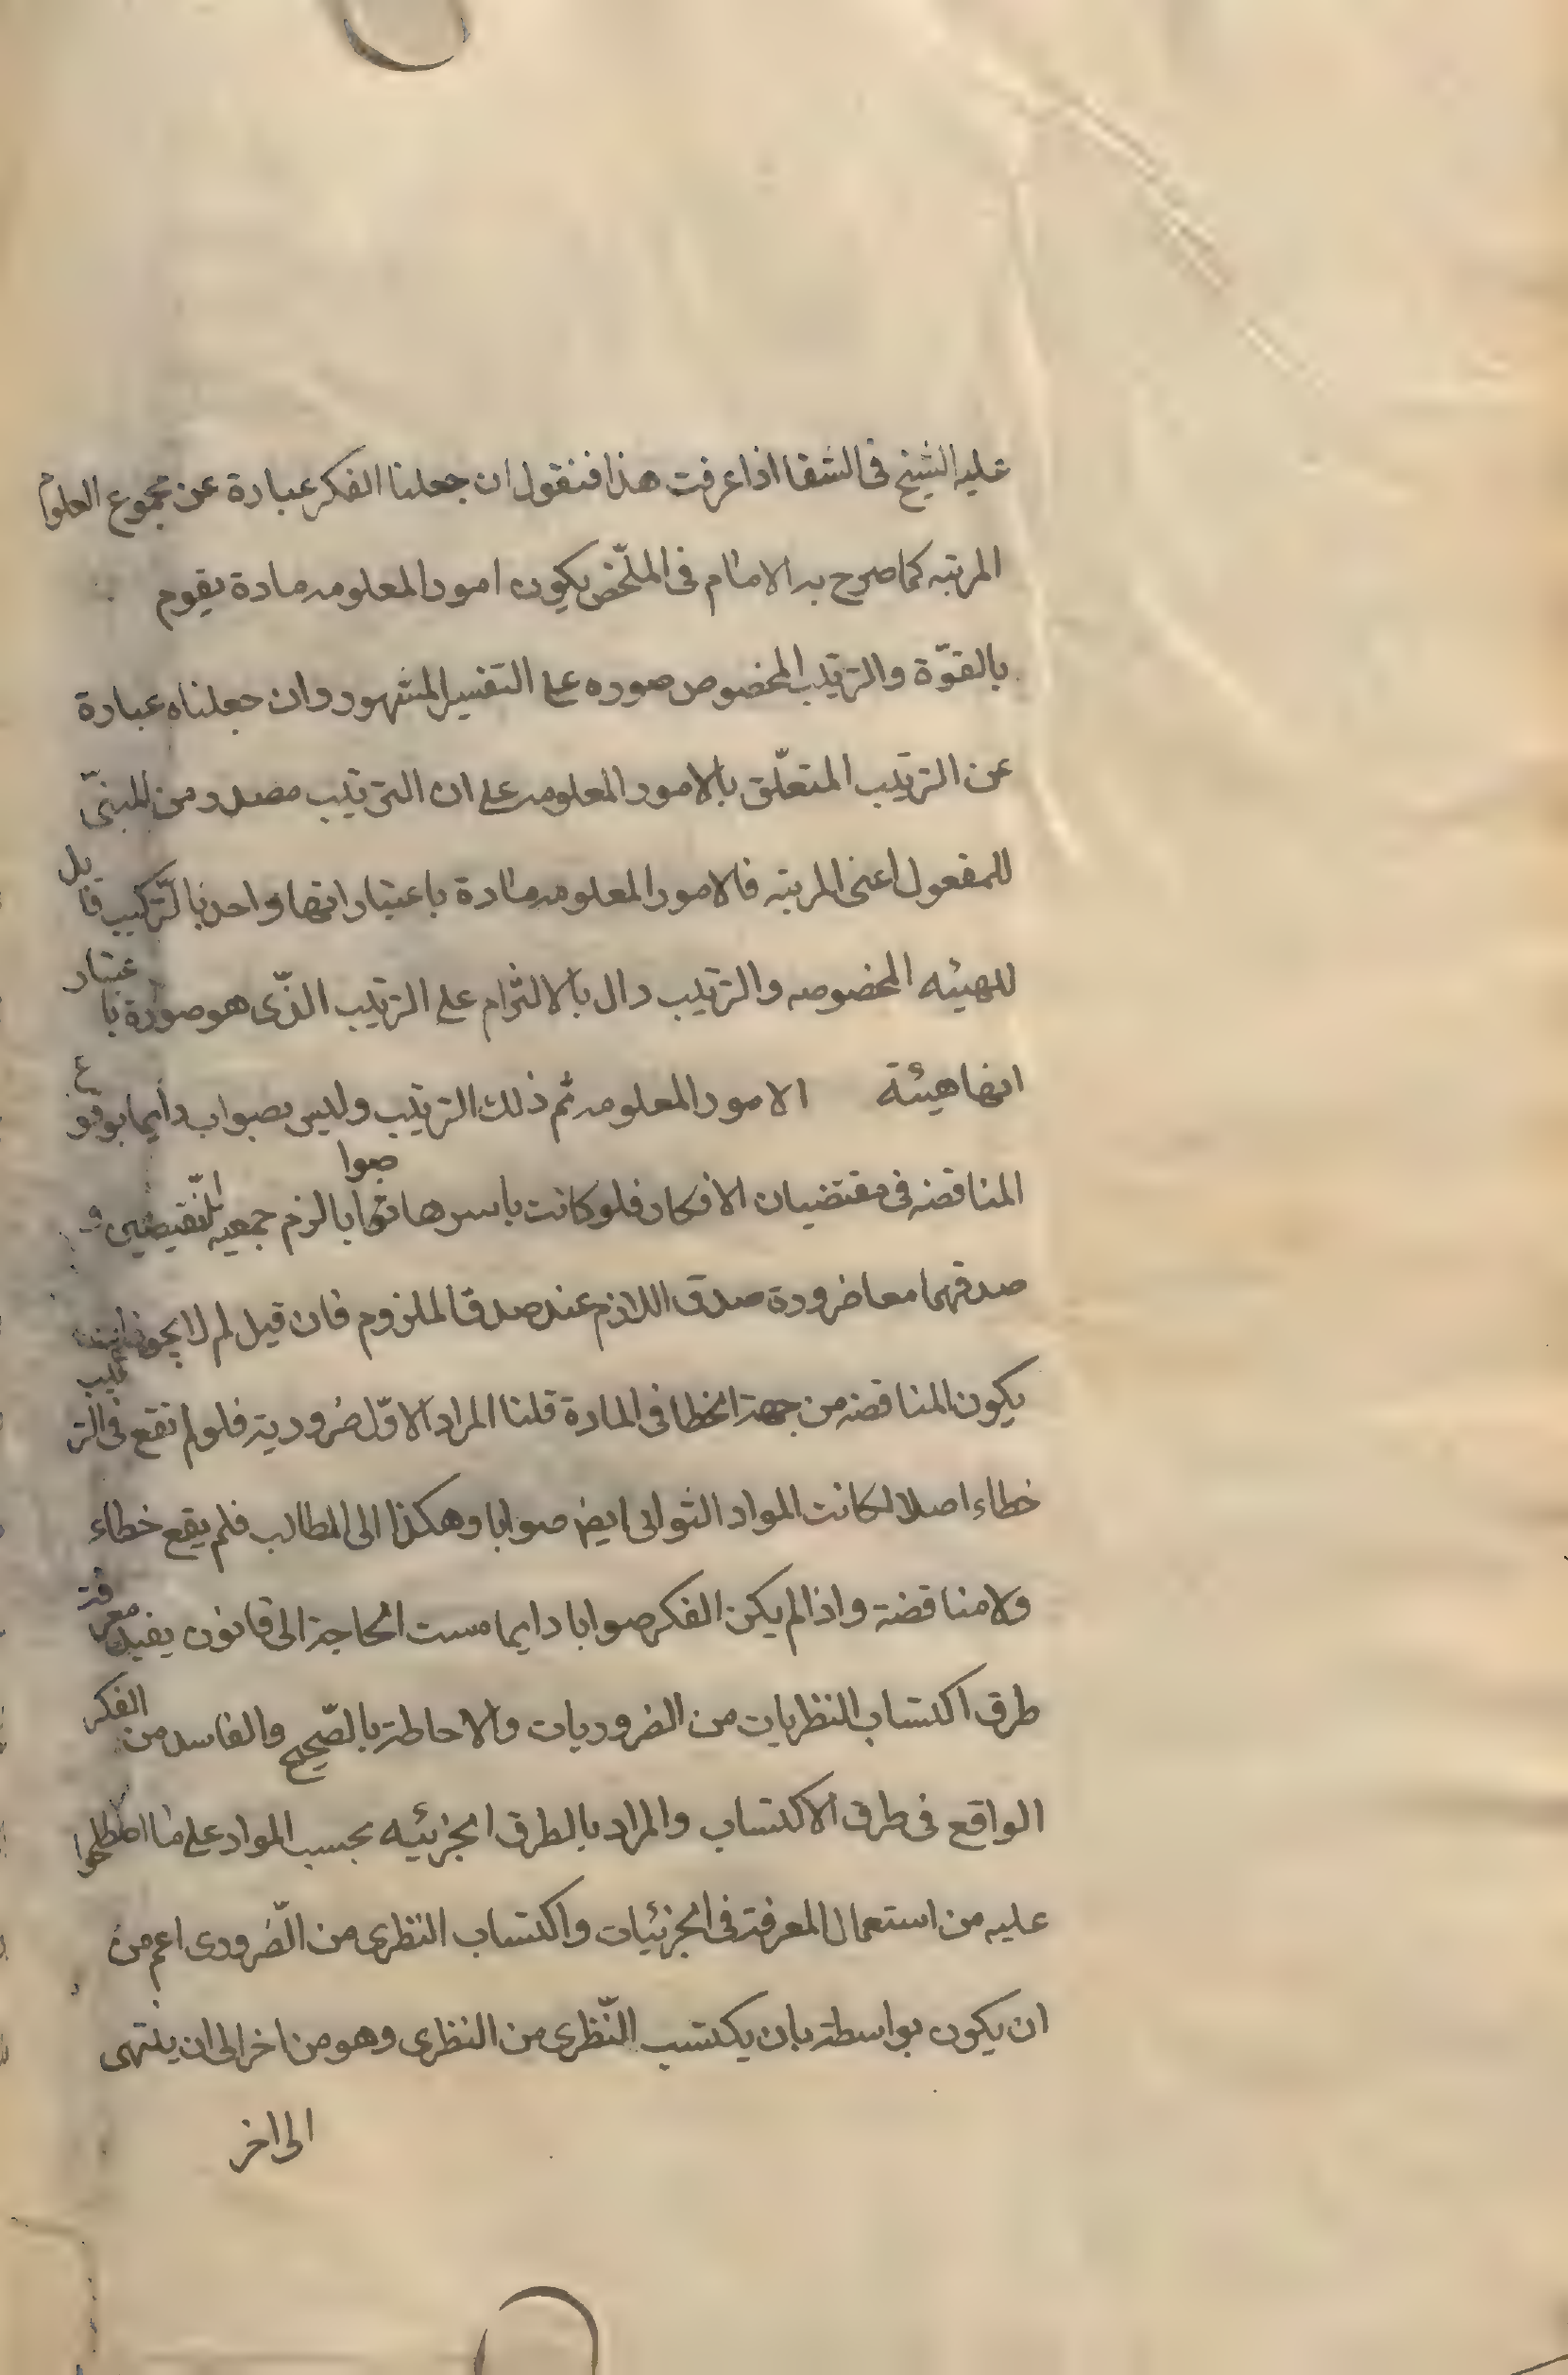 عليه الشيخ فى الشفا اذا عرفت هذا فنقول ان جعلنا الفكر عبادة عن مجموع العلوم
المرتبه كما صرح به الامام فى الملخّص يكون امور المعلومه مادة يقوم
بالقوّة والترتيب المخصوص صوره على التفسير المشهور وان جعلناه عبادة
عن الترتيب المتعلّق بالامور المعلومه على ان الترتيب مصدر من المبنىّ
للمفعول اعنى المرتبه فالامور المعلومه مادة باعتبار انها واحد بالتركيب قابل
للهيئه المخصوصه والترتيب دال بالالتزام على الترتيب الذّى هو صورة باعتبار
انها هيئة الامور المعلومه ثم ذلك الترتيب وليس بصواب دايما بوقوع
المناقضه فى مقتضيات الافكار فلو كانت باسرها صوابا لزم جمعيه النّقيضين و
صدقهما معا ضرورة صدق اللازم عند صدق الملزوم فان قيل لم لا يجوز ان
يكون المناقضه من جهة الخطا فى المادة قلنا المراد الاوّل ضروديه فلو لم تقع فى الترتيب
خطاء اصلا لكانت المواد الثوانى ايض صوابا وهكذا الى المطالب فلم يقع خطاء
ولا مناقضة واذا لم يكن الفكر صوابا دايما مست الحاجة الى قانون يفيد معرفة
طرق اكتساب النظريات من الضروريات والاحاطة بالصّحيح والفاسد من الفكر
الواقع فى طرق الاكتساب والمراد بالطرق الجزئيه بحسب المواد على ما اصطلحوا
عليه من استعمال المعرفة فى الجزئيات واكتساب النظرى من الضّرورى اعم من
ان يكون بواسطة بان يكتسب النّظرى من النظرى وهو من اخر الى ان ينتهى
الى اخر